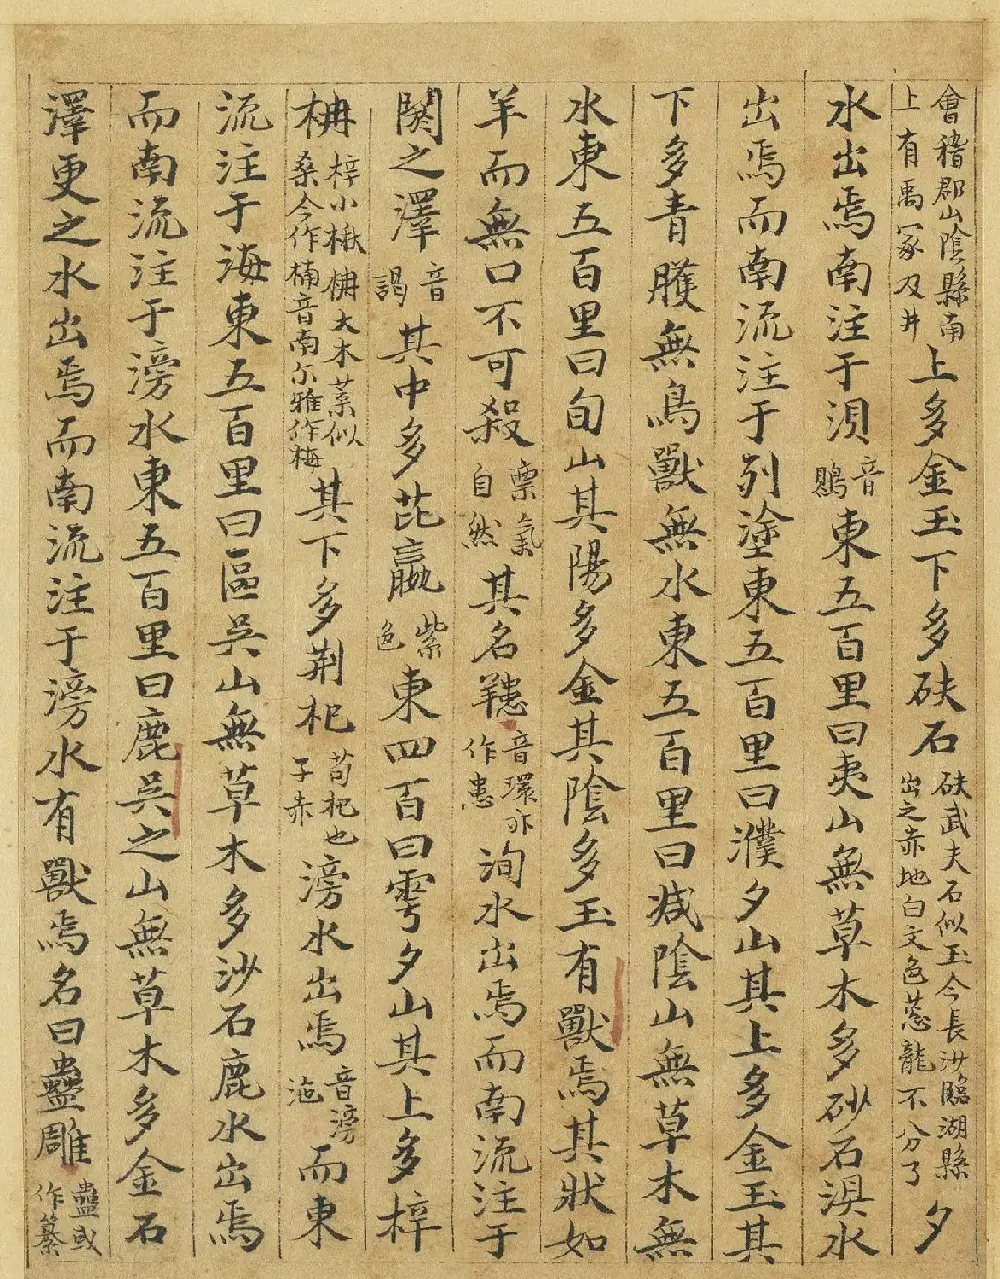 會稽郡山陰縣南上有禹冢及井上多金玉下多砆石砆武夫石似玉今長沙臨湖縣出之赤地白文色蔥龍不分了夕
水出焉南注于湨音鶪東五百里曰夷山無草木多砂石湨水
出焉而南流注于列塗東五百里曰濮夕山其上多金玉其
下多青雘無鳥獸無水東五百里曰减陰山無草木無
水東五百里曰旬山其陽多金其陰多玉有獸焉其狀如
羊而無口不可殺稟氣自然其名䍺音環亦作患洵水出焉而南流注于
閼之澤音謁其中多芘蠃紫色東四百曰雩夕山其上多梓
枬梓小楸枬大木葉似桑今作楠音南尔雅作梅其下多荆杞苟杞也子赤滂水出焉音滂沲而東
流注于海東五百里曰區吳山無草木多沙石鹿水出焉
而南流注于滂水東五百里曰鹿吳之山無草木多金石
澤更之水出焉而南流注于滂水有獸焉名曰蠱雕蠱或作纂